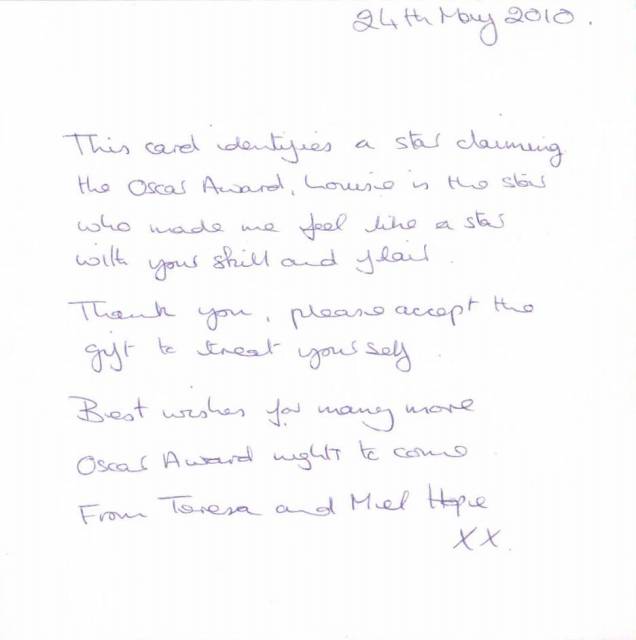 24th May 2010.
This card identifies a star claiming
the Oscar Award, Louise is the star
who made me feel like a star
with your skill and flair.
Thank you, please accept the
gift to treat yourself.
Best wishes for many more
Oscar Award night to come
From Teresa and Miel Hope
XX.